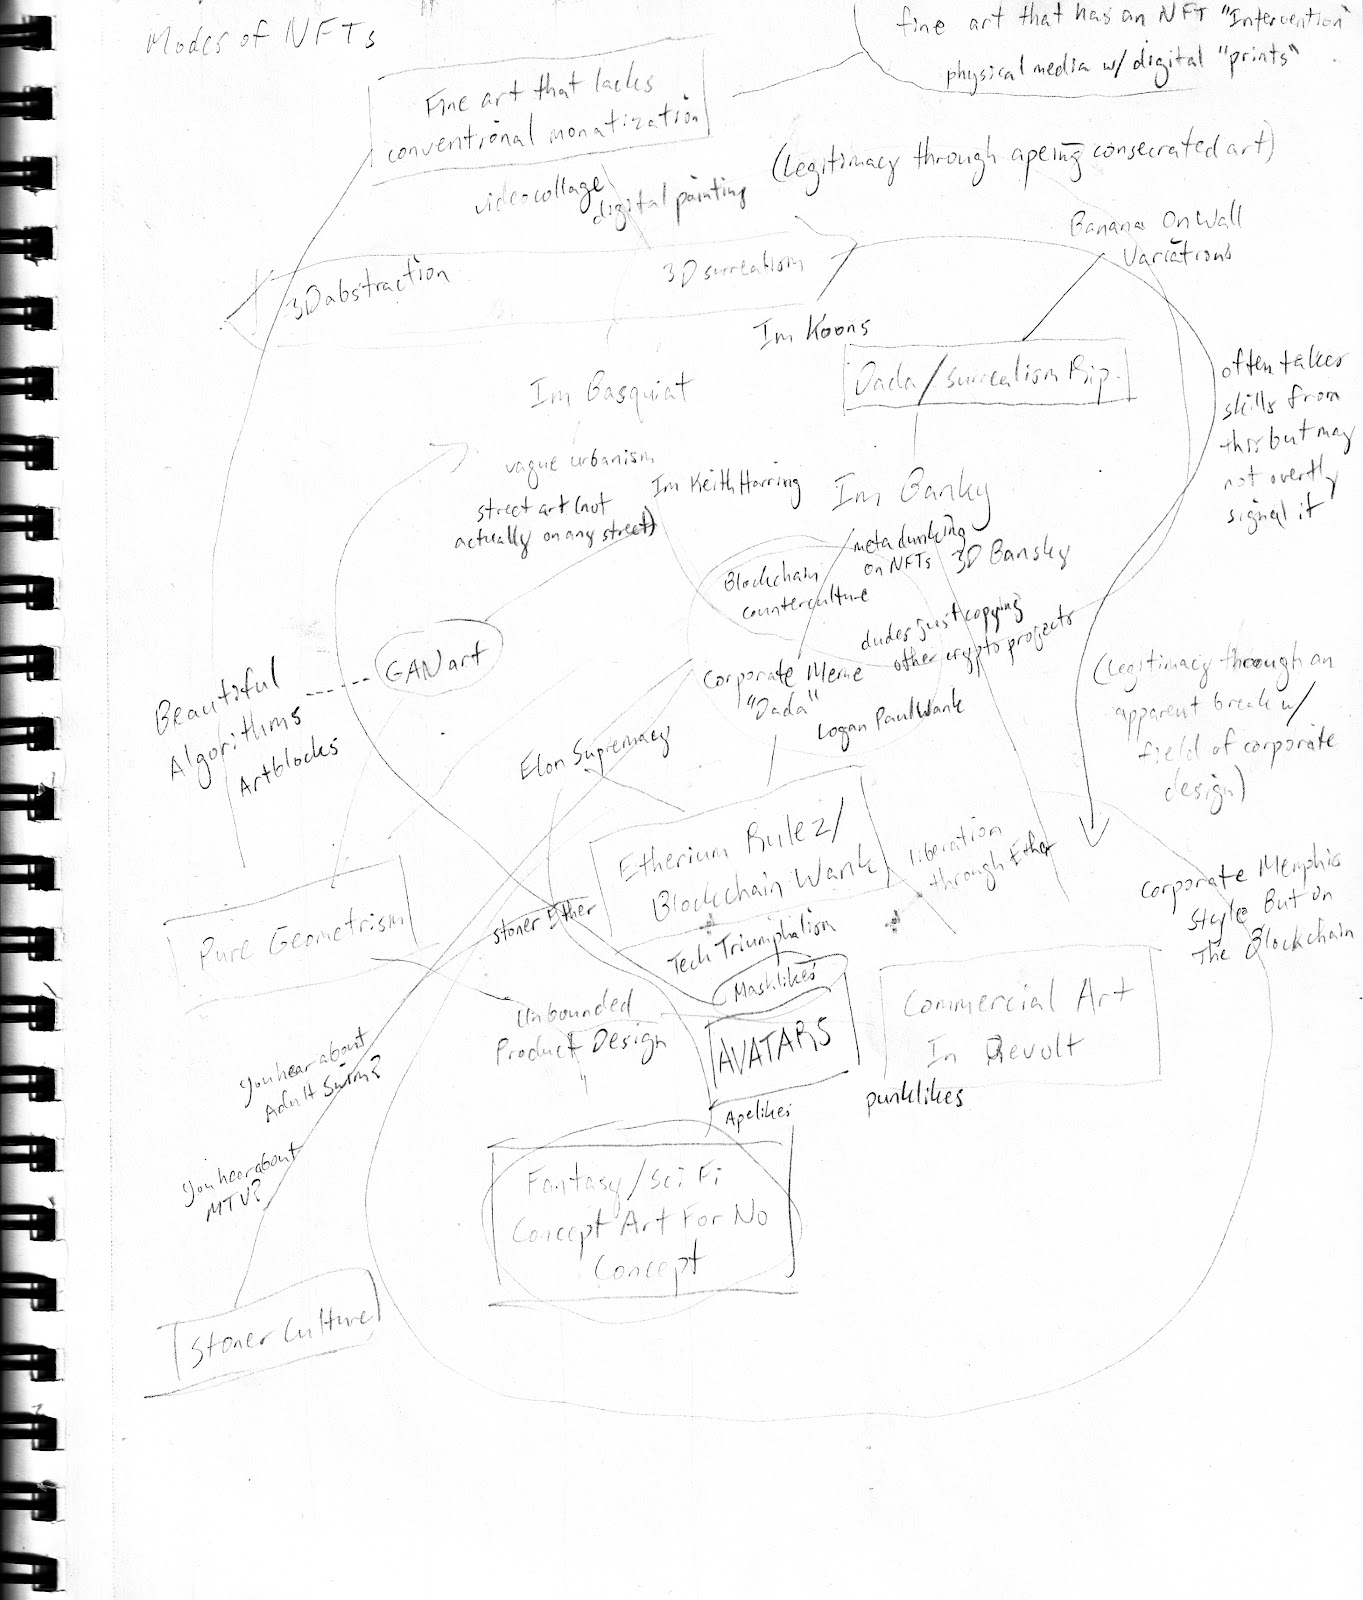 Modes of NFTs
fine art that has an NFT "Intervention"
physical media w/ digital "prints"
Fine art that lacks
conventional monatization
(Legitimacy through apeing consecrated art)
video collage
digital painting
Banana On Wall
Variations
3D abstraction
3D surrealism
Im Koons
Dada/Surrealism Rip.
often takes
skills from
this but may
not overtly
signal it
Im Basquiat
vague urbanism
street art (not
actually on any street)
Im Keith Harring
Im Banky
meta dunking
on NFTs
3D Bansky
Blockchain
counterculture
dudes just copying
other crypto projects
GAN art
Corporate Meme
"Dada"
Logan Paul Wank
(Legitimacy through an
apparent break w/
field of corporate
design)
Beautiful
Algorithms
Artblocks
Elon Supremacy
Etherium Rulez/
Blockchain Wank
liberation
through Ether
Tech Triumphalism
Corporate Memphis
Style But on
The Blockchain
Pure Geometrism
Stoner Ether
Masklikes
Unbounded
Product Design
AVATARS
Commercial Art
In Revolt
Apelikes
punklikes
you hear about
Adult Swim?
you hear about
MTV?
Fantasy/Sci Fi
Concept Art For No
Concept
Stoner Culture